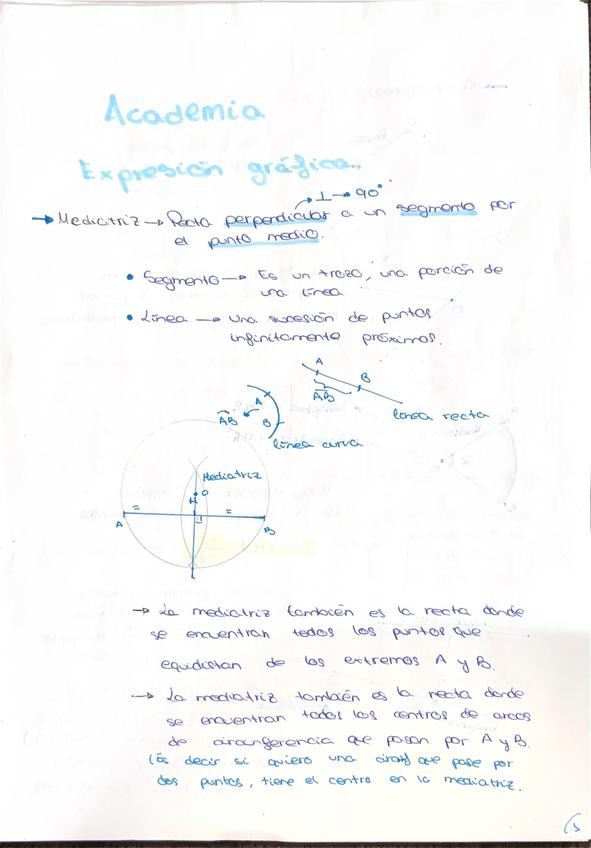 Academia
Expresión gráfica..
→ ⊥ → 90°
→ Mediatriz → Recta perpendicular a un segmento por
el punto medio.
• Segmento → Es un trozo, una porción de
una línea
• Línea → Una sucesión de puntos
infinitamente próximos.
A
B
AB
línea recta
A
AB
B
línea curva
Mediatriz
O
M
= =
A
B
→ La mediatriz también es la recta donde
se encuentran todos los puntos que
equidistan de los extremos A y B.
→ La mediatriz también es la recta donde
se encuentran todos los centros de arcos
de circunferencia que pasan por A y B.
(Es decir si quiero una que pase por
dos puntos, tiene el centro en la mediatriz.